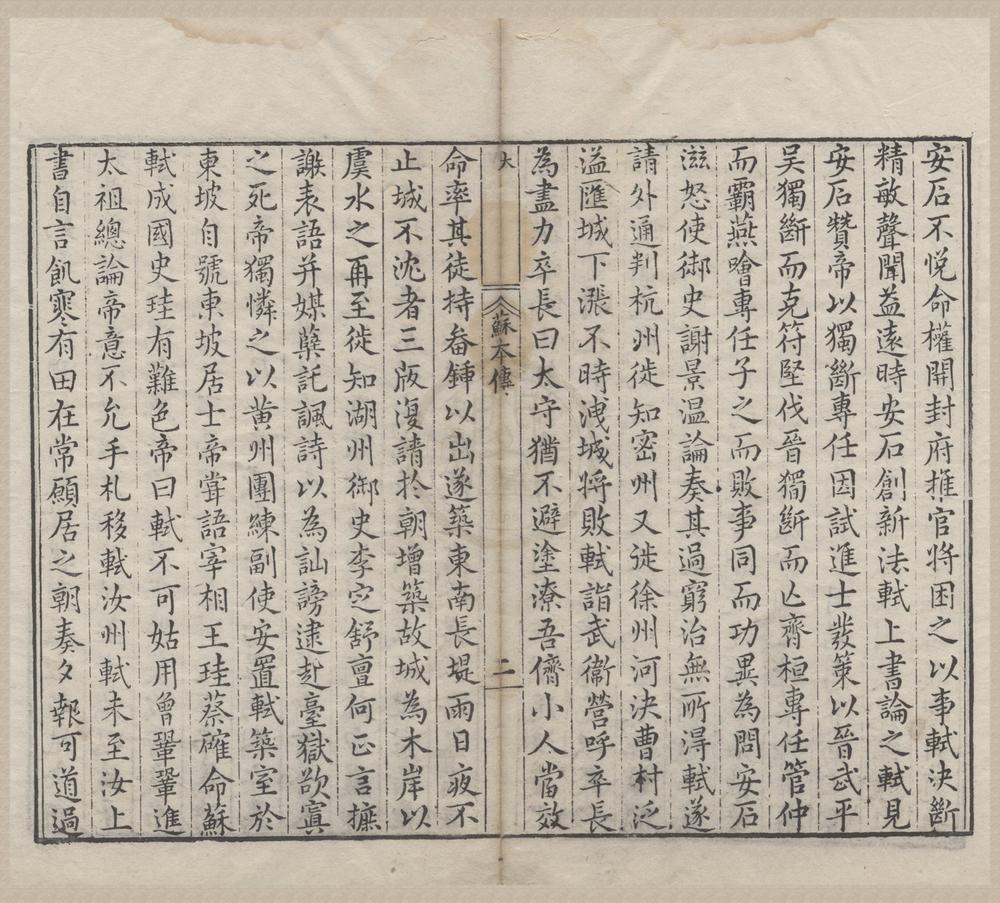 安石不悅命權開封府推官將困之以事軾決斷
精敏聲聞益遠時安石創新法軾上書論之軾見
安石贊帝以獨斷專任因試進士發策以晉武平
吳獨斷而克符堅伐晉獨斷而亾齊桓專任管仲
而霸燕噲專任子之而敗事同而功異為問安石
滋怒使御史謝景温論奏其過窮治無所淂軾遂
請外通判杭州徙知密州又徙徐州河決曹村泛
溢匯城下漲不時洩城將敗軾詣武衞營呼卒長
為盡力卒長曰太守猶不避塗潦吾儕小人當效
大 蘇本傳 二
命率其徒持畚鍤以出遂築東南長堤雨日夜不
止城不沈者三版復請於朝增築故城為木岸以
虞水之再至徙知湖州御史李定舒亶何正言摭
謝表語并媒糵託諷詩以為訕謗逮赴臺獄欲寘
之死帝獨憐之以黄州團練副使安置軾築室於
東坡自號東坡居士帝嘗語宰相王珪蔡確命蘇
軾成國史珪有難色帝曰軾不可姑用曾鞏鞏進
太祖總論帝意不允手札移軾汝州軾未至汝上
書自言飢寒有田在常願居之朝奏夕報可道過